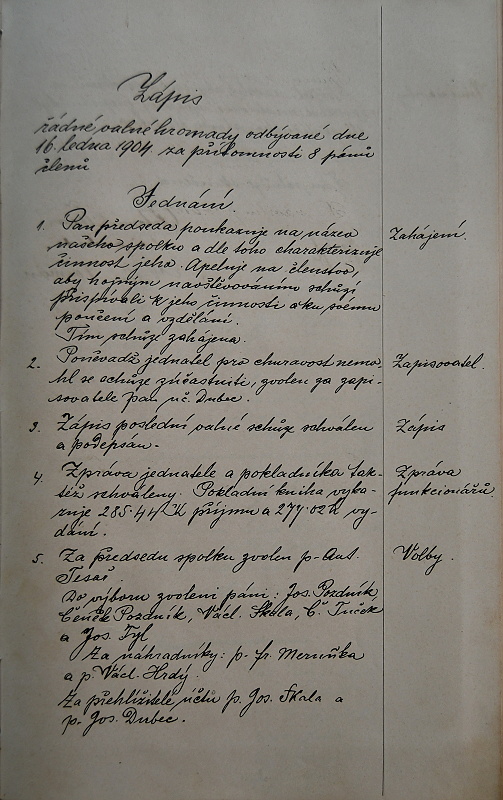 Zápis
řádné valné hromady odbývané dne
16. ledna 1904 za přítomnosti 8 pánů
členů
Jednání
1. Pan předseda poukazuje na název Zahájení.
našeho spolku a dle toho charakterizuje
činnost jeho. Apeluje na členstvo,
aby hojným navštěvováním schůzí
přispívali k jeho činnosti a ku svému
poučení a vzdělání.
Tím schůze zahájena.
2. Poněvadž jednatel pro churavost nemo- Zapisovatel.
hl se schůze zúčastniti, zvolen za zapi-
sovatele pan uč. Dubec.
3. Zápis poslední valné schůze schválen Zápis
a podepsán.
4. Zpráva jednatele a pokladníka tak- Zpráva
též schváleny. Pokladní kniha vyka- funkcionářů
zuje 285.44 K příjmu a 277.02 K vy-
dání.
5. Za předsedu spolku zvolen p. Ant. Volby.
Tesař.
Do výboru zvoleni páni: Jos. Pozdník,
Čeněk Pozdník, Václ. Skála, Č. Tuček
a Jos. Tyl
Za náhradníky: p. Fr. Meruňka
a p. Václ. Hrdý.
Za přehlížitele účtů p. Jos. Skala a
p. Jos. Dubec.